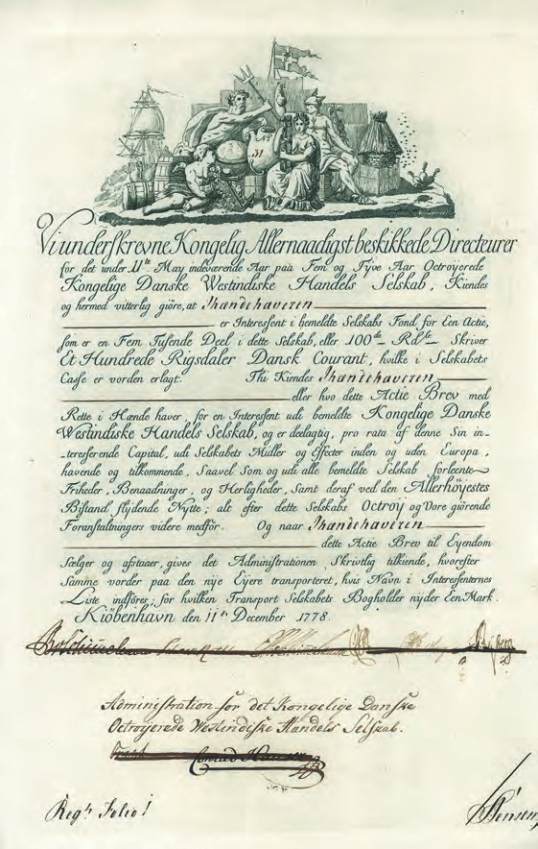 31
Vi underskrevne Kongelig Allernaadigst beskikkede Directeurer
for det under 11te May indeværende Aar paa Fem og Tyve Aar Octroyerede
Kongelige Danske Westindiske Handels Selskab, Kiendes
og hermed vitterlig giöre, at Ihændehaveren
er Interessent i bemeldte Selskabs Fond for Een Actie,
som er en Fem Tusende Deel i dette Selskab, eller 100de Rdlr Skriver
Et Hundrede Rigsdaler Dansk Courant, hvilke i Selskabets
Casse er vorden erlagt. Thi Kiendes Ihændehaveren
eller hvo dette Actie Brev med
Rette i Hænde haver, for en Interessent udi bemeldte Kongelige Danske
Westindiske Handels Selskab, og er deelagtig, pro rata af denne Sin in-
teresserende Capital, udi Selskabets Midler og Effecter inden og uden Europa,
havende og tilkommende, Saavel Som og udi alle bemeldte Selskab forleente
Friheder, Benaadninger, og Herligheder, Samt deraf ved den Allerhöjestes
Bistand flydende Nytte; alt efter dette Selskabs Octroj og Vore giörende
Foranstaltningers videre medför. Og naar Ihændehaveren
dette Actie Brev til Eyendom
Sælger og afstaaer, giver det Administrationen Skriftlig tilkiende, hvorefter
Samme vorder paa den nije Eijere transporteret, hvis Navn i Interessenternes
Liste indföres; for hvilken Transport Selskabets Bogholder nijder Een Mark.
Kiöbenhavn den 11te December 1778.
Administration for det Kongelige Danske
Octroyerede Westindiske Handels Selskab.
Conrad
Regtr Folio 1